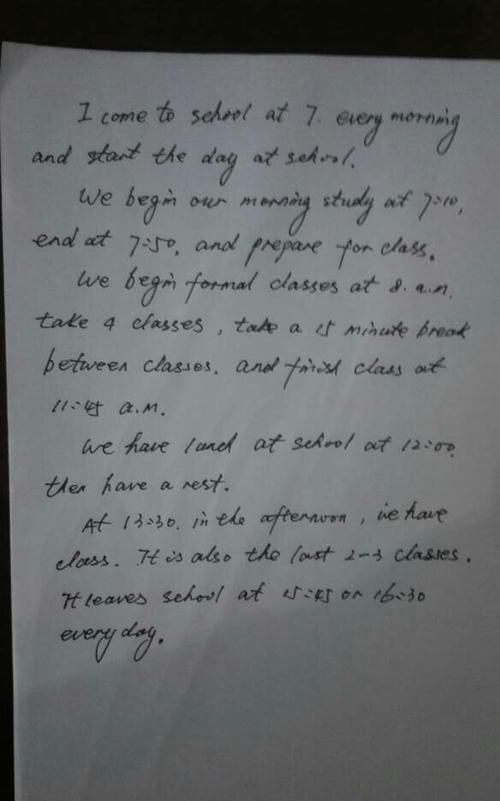 I come to school at 7. every morning
and start the day at school.
We begin our morning study at 7:10,
end at 7:50, and prepare for class.
We begin formal classes at 8. a.m.
take 4 classes, take a 15 minute break
between classes. and finish class at
11:45 a.m.
We have lunch at school at 12:00.
then have a rest.
At 13:30. in the afternoon, we have
class. It is also the last 2-3 classes.
It leaves school at 15:45 or 16:30
every day.